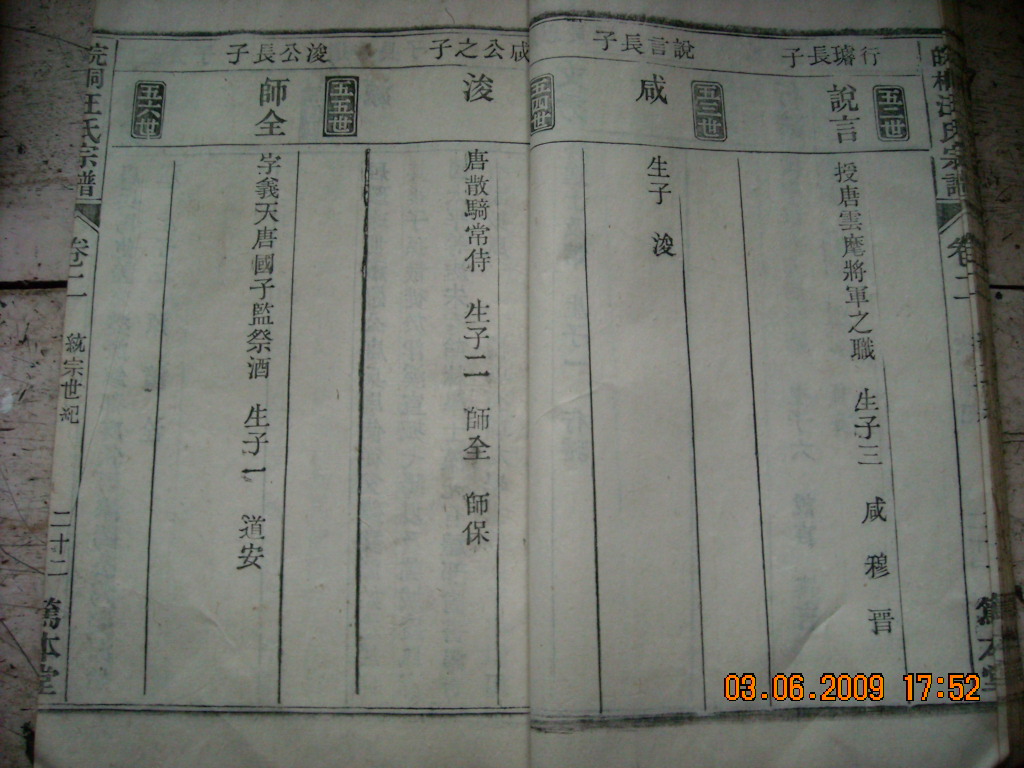 皖桐汪氏宗譜
卷二
五二世
行璿長子
說言
授唐雲麾將軍之職 生子三 咸 穆 晋
五三世
說言長子
咸
生子 浚
五四世
咸公之子
浚
唐散騎常侍 生子二 師全 師保
五五世
浚公長子
師全
字義天唐國子監祭酒 生子一 道安
五六世
皖桐汪氏宗譜
卷二
統宗世紀
二十二
篤本堂
03.06.2009 17:52